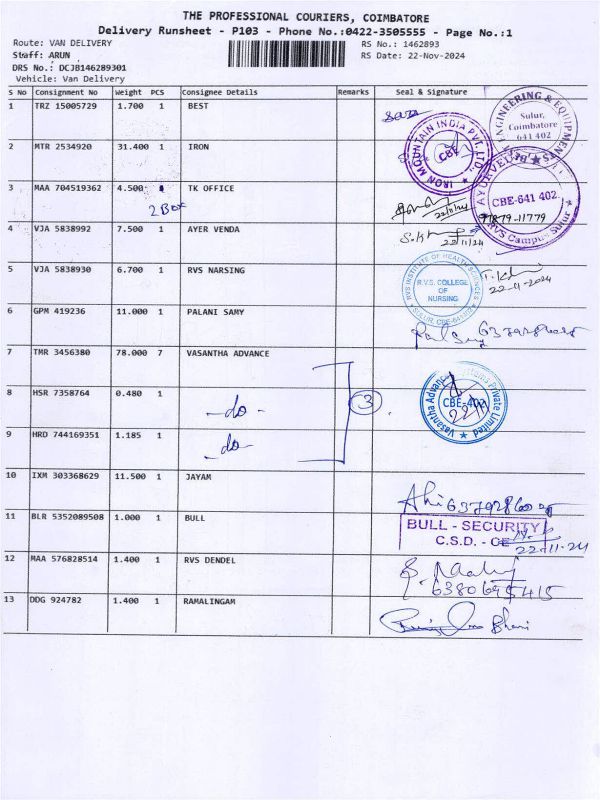 THE PROFESSIONAL COURIERS, COIMBATORE
Delivery Runsheet - P103 - Phone No.:0422-3505555 - Page No.:1
Route: VAN DELIVERY RS No.: 1462893
Staff: ARUN RS Date: 22-Nov-2024
DRS No.: DCJB146289301
Vehicle: Van Delivery
S No Consignment No Weight PCS Consignee Details Remarks Seal & Signature
1 TRZ 15005729 1.700 1 BEST
ENGINEERING & EQUIPMENTS
Sulur,
Coimbatore
641 402
2 MTR 2534920 31.400 1 IRON
IRON MOUNTAIN INDIA PVT. LTD.
CBE
3 MAA 704519362 4.500 TK OFFICE
2 Box
22/11/24
AYURVEDA
CBE-641 402.
RVS Campus Sulur
97879-11779
4 VJA 5838992 7.500 1 AYER VENDA
22/11/24
5 VJA 5838930 6.700 1 RVS NARSING
RVS INSTITUTE OF HEALTH SCIENCES
R.V.S. COLLEGE
OF
NURSING
22-11-2024
6 GPM 419236 11.000 1 PALANI SAMY
7 TMR 3456380 78.000 7 VASANTHA ADVANCE
8 HSR 7358764 0.480 1 -do-
3
Vasantha Advanced Systems Private Limited
CBE-402
9 HRD 744169351 1.185 1 -do-
10 IXM 303368629 11.500 1 JAYAM
11 BLR 5352089508 1.000 1 BULL
BULL - SECURITY
C.S.D. - CBE
22-11-24
12 MAA 576828514 1.400 1 RVS DENDEL
13 DDG 924782 1.400 1 RAMALINGAM